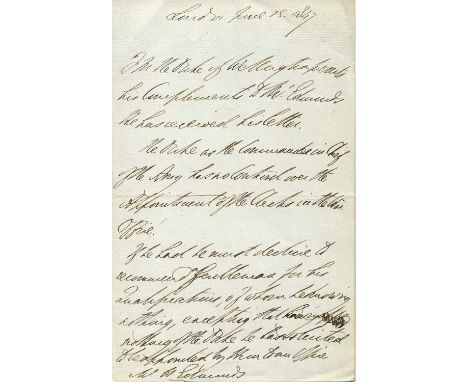 London June 18. 1847
F M the Duke of Wellington presents
his Compliments to Mr. Edmunds
He has received his letter.
The Duke as the Commander in Chief
of the Army has no Controul over the
Appointment of the Clerks in the War
Office.
If he had he must decline to
recommend Gentlemen for his
qualifications, of whom he knows
nothing, excepting that
nothing of the Duke he has
to be appointed by the War Office
Mr Edmunds